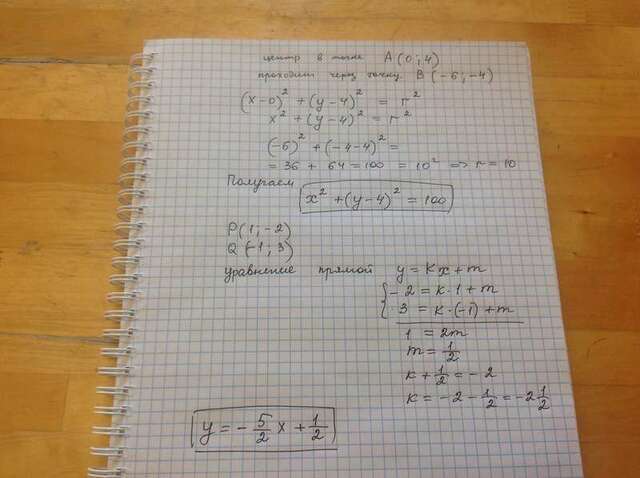 центр в точке A(0;4)
проходит через точку B(-6;-4)
(x-0)² + (y-4)² = r²
x² + (y-4)² = r²
(-6)² + (-4-4)² =
= 36 + 64 = 100 = 10² => r = 10
Получаем
x² + (y-4)² = 100
P(1;-2)
Q(-1;3)
уравнение прямой y = kx + m
{ -2 = k·1 + m
3 = k·(-1) + m
1 = 2m
m = 1/2
k + 1/2 = -2
k = -2 - 1/2 = -2 1/2
y = - 5/2 x + 1/2